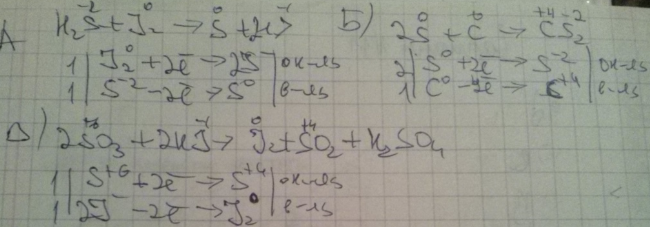 А H₂S⁻² + J₂⁰ → S⁰ + 2HJ⁻¹
1 | J₂⁰ + 2ē → 2J⁻ | ок-ль
1 | S⁻² - 2ē → S⁰ | в-ль
Б) 2S⁰ + C⁰ → C⁺⁴S₂⁻²
2 | S⁰ + 2ē → S⁻² | ок-ль
1 | C⁰ - 4ē → C⁺⁴ | в-ль
В) 2S⁺⁶O₃ + 2KJ⁻¹ → J₂⁰ + S⁺⁴O₂ + K₂SO₄
1 | S⁺⁶ + 2ē → S⁺⁴ | ок-ль
1 | 2J⁻ - 2ē → J₂⁰ | в-ль